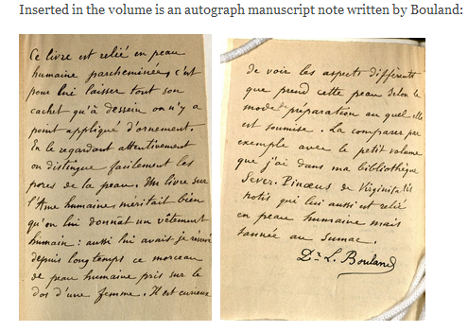 Inserted in the volume is an autograph manuscript note written by Bouland:
Ce livre est relié en peau
humaine parcheminée, c'est
pour lui laisser tout son
cachet qu'à dessein on n'y a
point appliqué d'ornement.
En le regardant attentivement
on distingue facilement les
pores de la peau. Un livre sur
l'Ame humaine méritait bien
qu'on lui donnât un vêtement
humain : aussi lui avais je réservé
depuis longtemps ce morceau
de peau humaine pris sur le
dos d'une femme. Il est curieux
de voir les aspects différents
que prend cette peau selon le
mode de préparation au quel elle
est soumise. La comparer par
exemple avec le petit volume
que j'ai dans ma bibliothèque,
Sever. Pinæus de Virginitatis
notis qui lui aussi est relié
en peau humaine mais
tannée au sumac.
Dr. L. Bouland